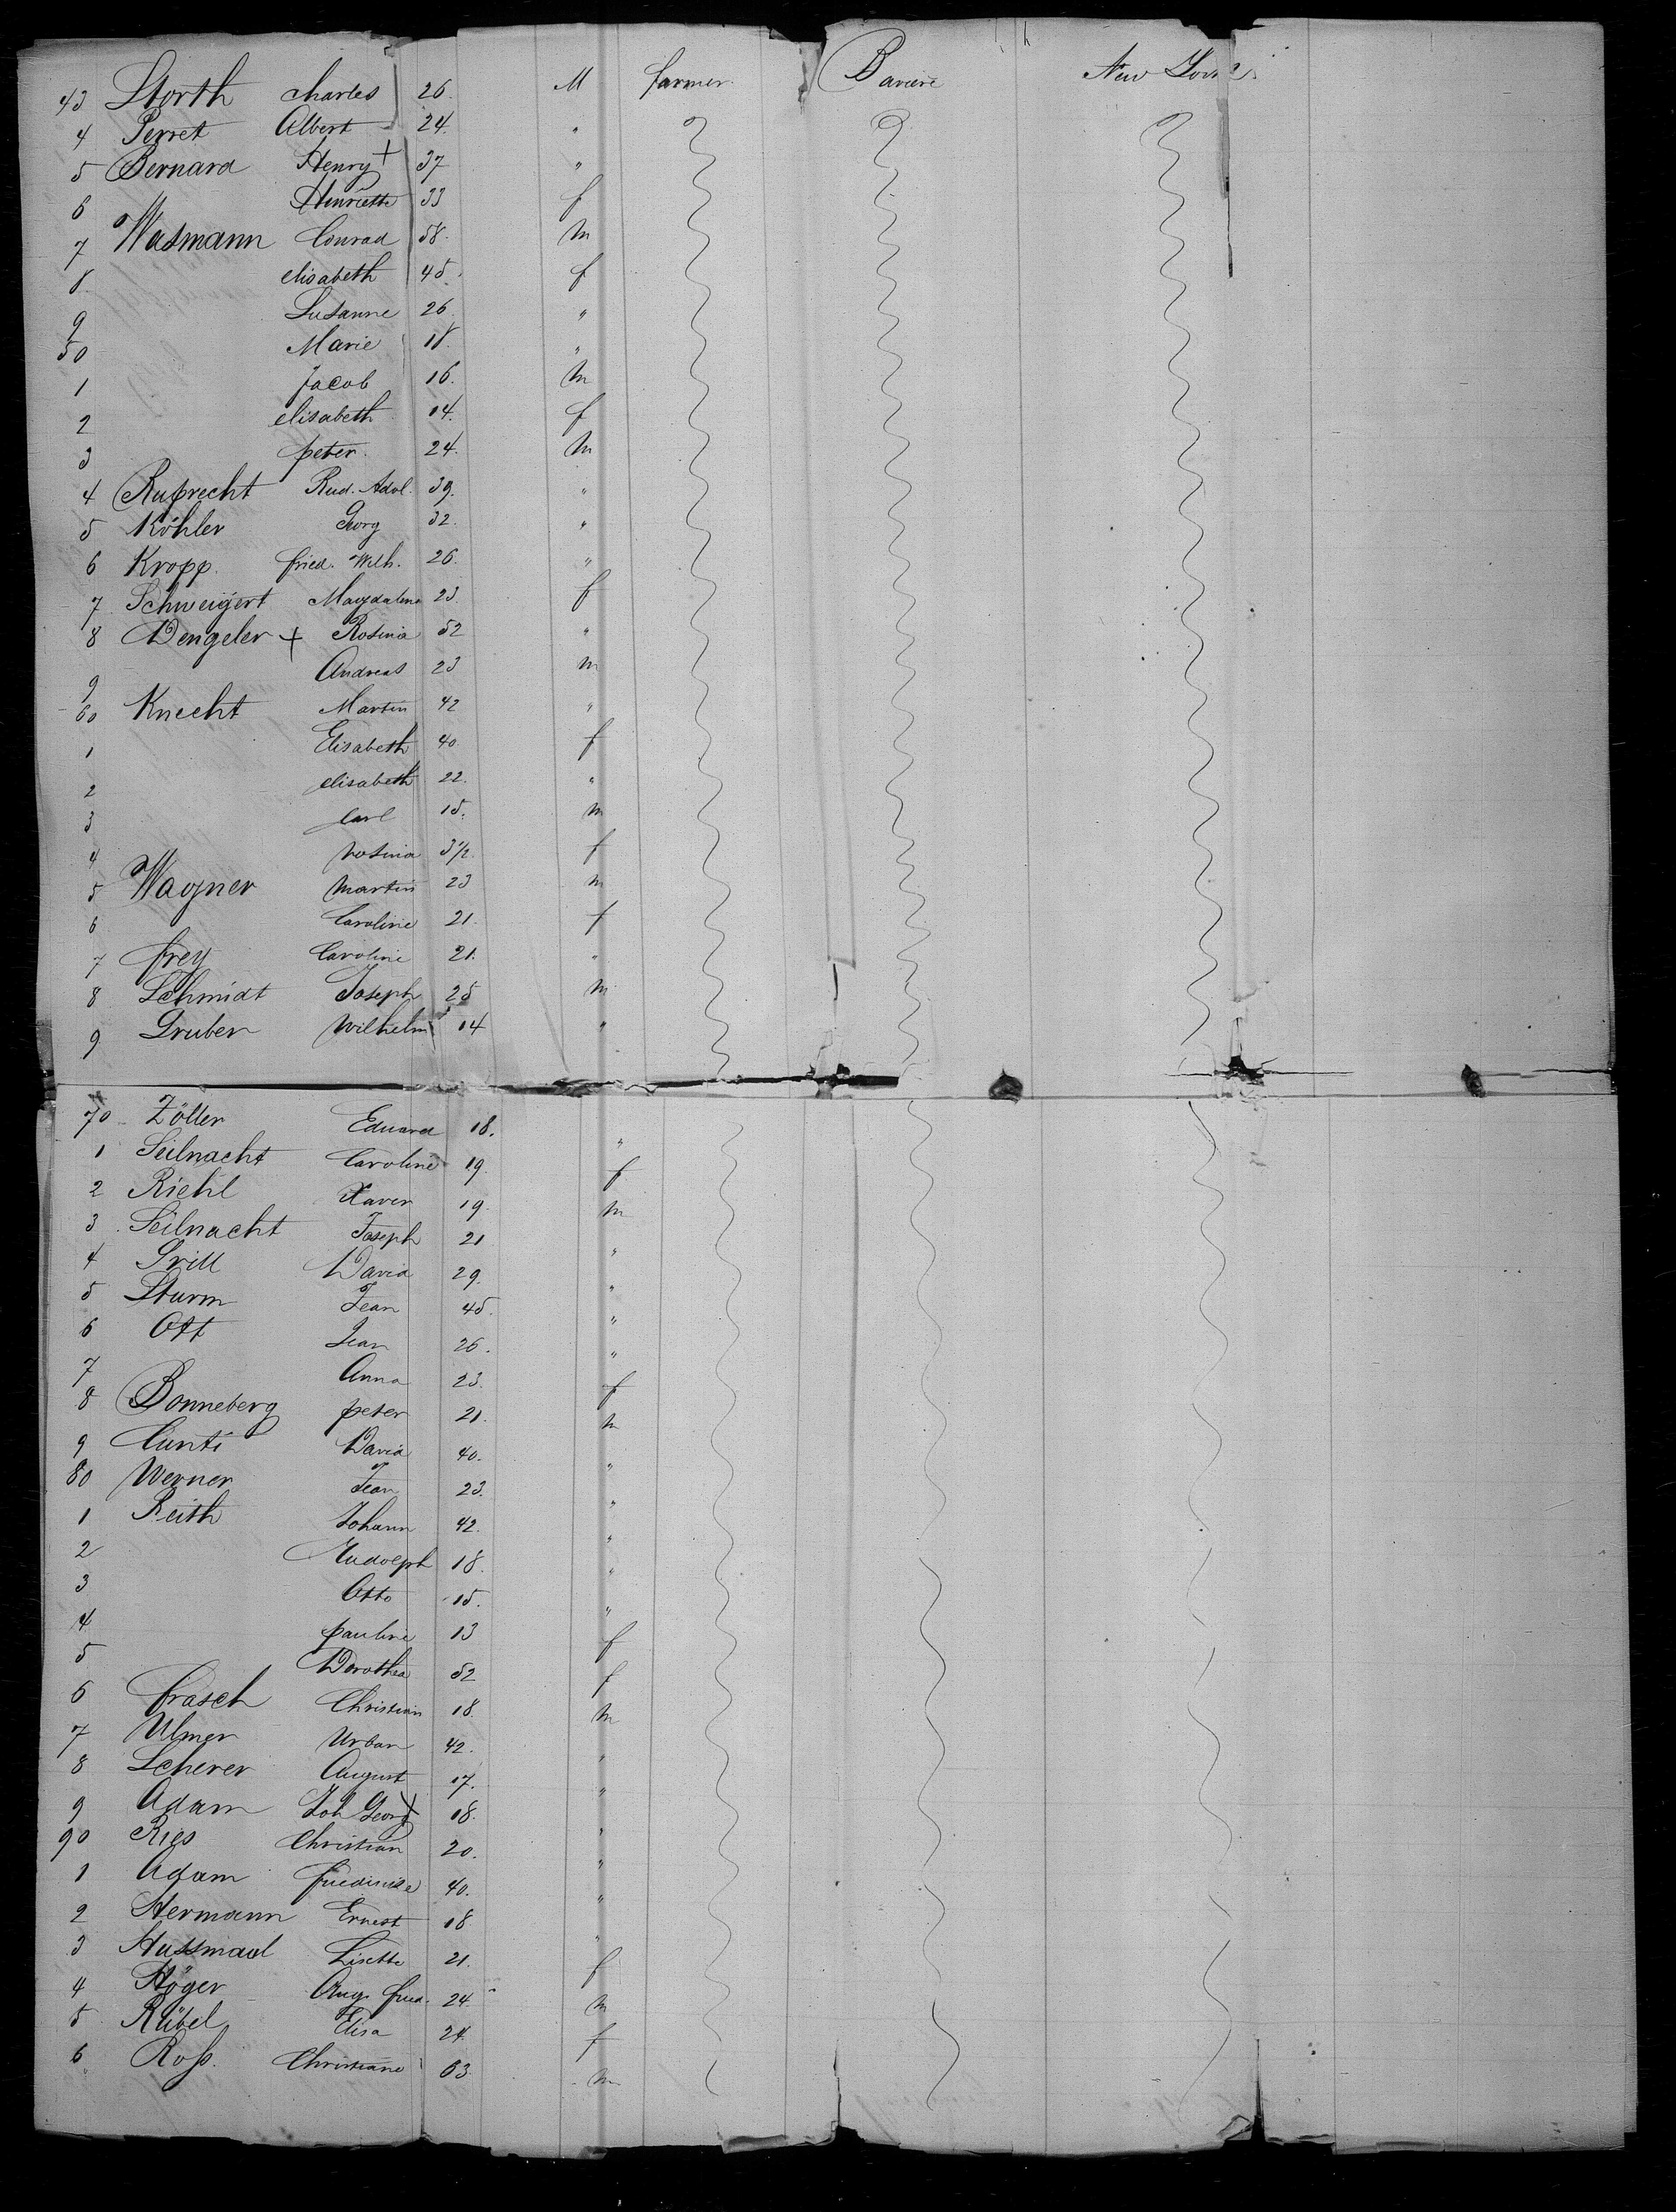 43 Storth Charles 26. M farmer Baviere New York
4 Perret Albert 24. "
5 Bernard Henry + 37 "
6 Henriette 33 f
7 Wasmann Conrad 58. m
8 elisabeth 45. f
9 Susanne 26. "
50 Marie 18. "
1 Jacob 16. m
2 elisabeth 14. f
3 peter. 24. m
4 Ruprecht Rud. Adol. 39. "
5 Köhler Georg 32. "
6 Kropp. fried. Wilh. 26. "
7 Schweigert Magdalena 23. f
8 Dengeler + Rosina 52 "
9 Andreas 23 m
60 Knecht Martin 42 "
1 Elisabeth 40. f
2 elisabeth 22. "
3 Carl 15. m
4 rosina 3 1/2. f
5 Wagner martin 23 m
6 Caroline 21. f
7 frey Caroline 21. "
8 Schmidt Joseph 25 m
9 Gruber Wilhelm 14 "
70 Zöller Eduard 18. "
1 Seilnacht Caroline 19. f
2 Riehl Xaver 19. m
3 Seilnacht Joseph 21 "
4 Grill David 29. "
5 Sturm Jean 45. "
6 Ott Jean 26. "
7 Anna 23. f
8 Bonneberg peter 21. m
9 Cunti David 40. "
80 Werner Jean 23. "
1 Reith Johann 42. "
2 Rudolph 18. "
3 Otto 15. "
4 pauline 13 f
5 Dorothea 52 f
6 frasch Christian 18. m
7 Ulmer Urban 42. "
8 Scherer August 17. "
9 Adam Joh Georg + 18. "
90 Ries Christian 20. "
1 Adam 40. "
2 Hermann Ernest 18 "
3 Lisette 21. f
4 Höger Aug. fried. 24. m
5 Rübel Elisa 24. f
6 Roß. Christiane 63. m